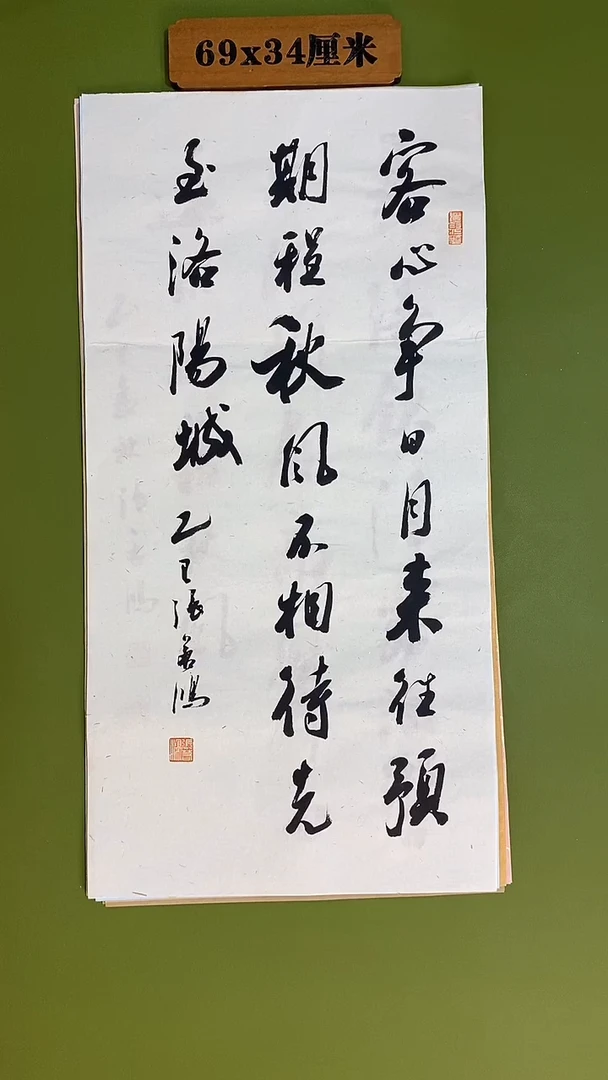 69x34厘米
客心争日月来往預
期程秋风不相待先
至洛陽城 乙巳張